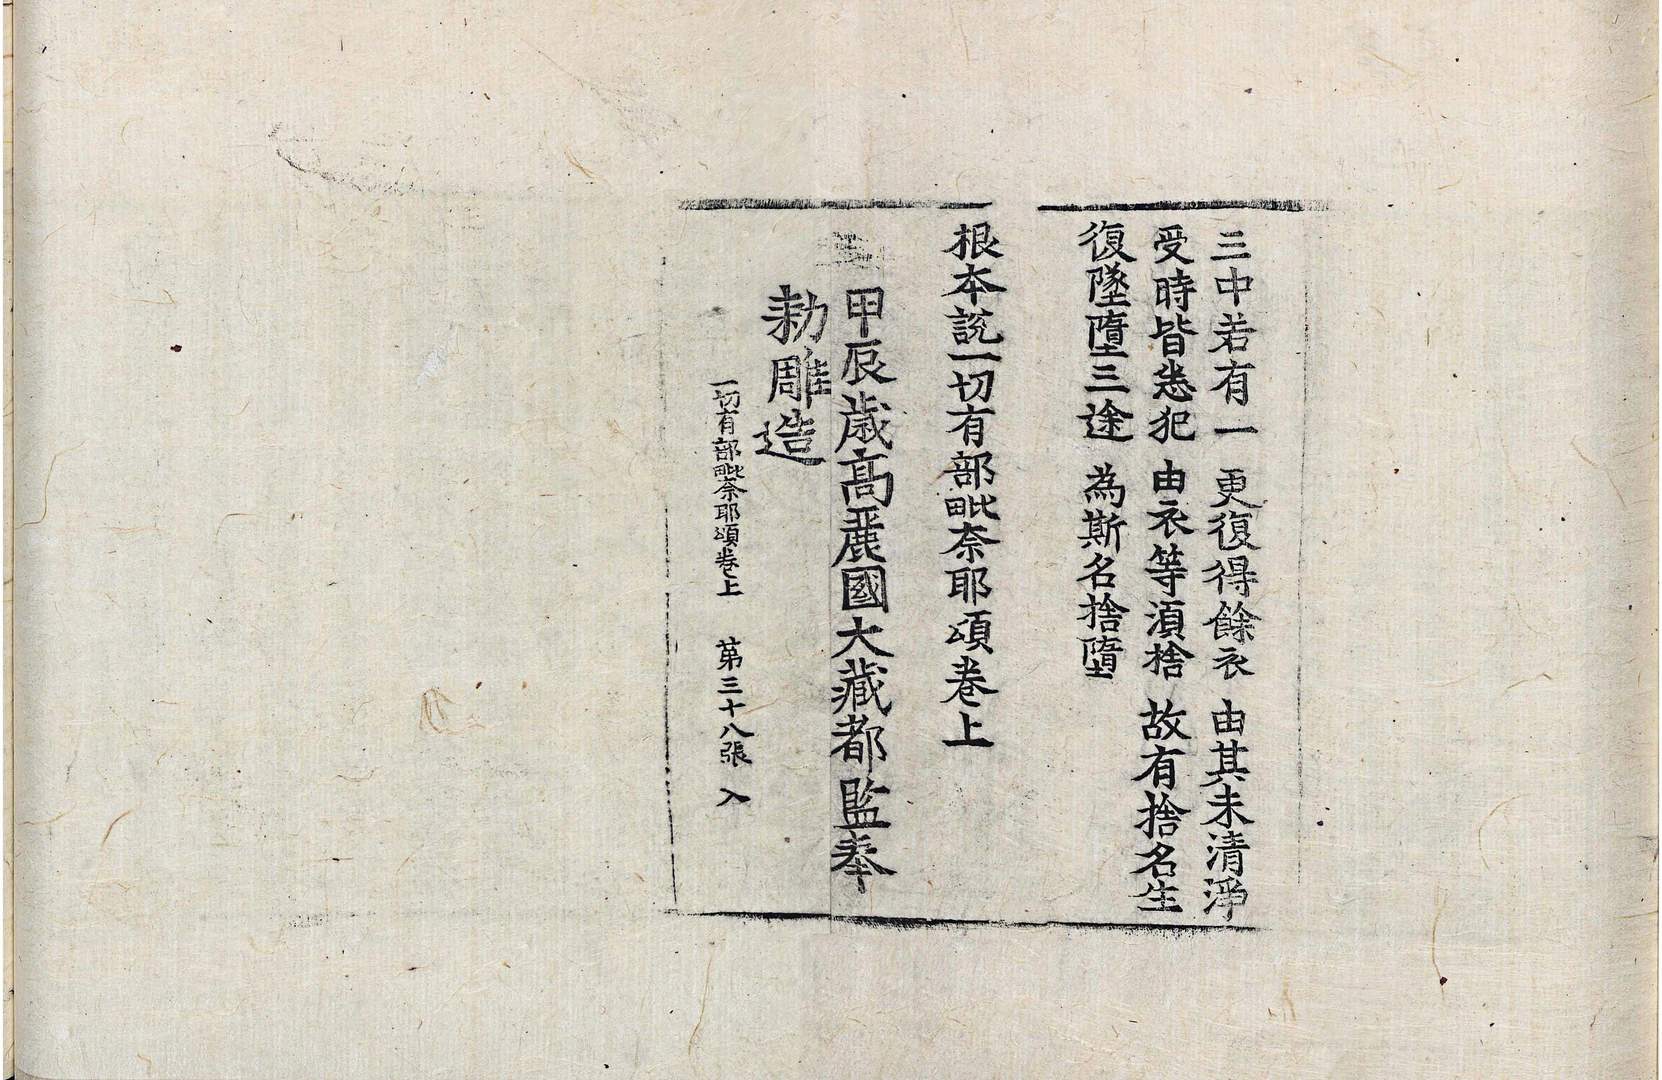 三中若有一 更復得餘衣 由其未清淨
受時皆悉犯 由衣等湏捨 故有捨名生
復墜墮三途 為斯名捨墮
根本說一切有部毗奈耶頌卷上
甲辰歲高麗國大藏都監奉
勑雕造
一切有部毗奈耶頌卷上 苐三十八張 入